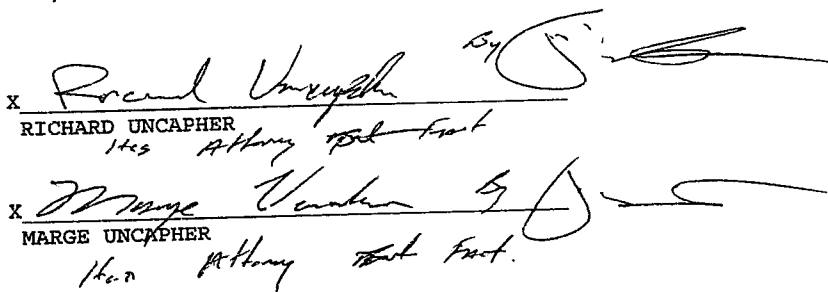 X Richard Uncapher By
RICHARD UNCAPHER
His Attorney Fact
X Marge Uncapher By
MARGE UNCAPHER
Her Attorney Fact.